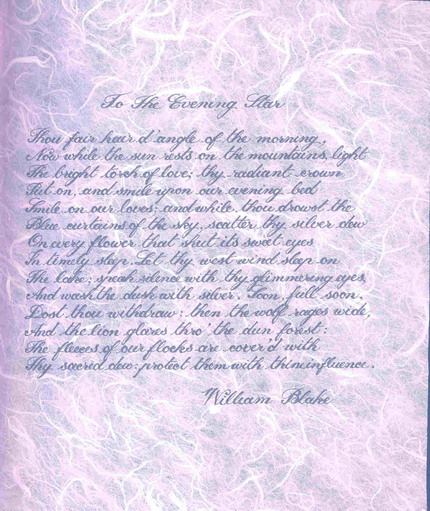 To The Evening Star
Thou fair hair'd angle of the morning,
Now while the sun rests on the mountains, light
The bright torch of love; thy radiant crown
Put on, and smile upon our evening bed
Smile on our loves; and while thou drowst the
Blue curtains of the sky, scatter thy silver dew
On every flower that shut its sweet eyes
In timely sleep. Let thy west wind sleep on
The lake; speak silence with thy glimmering eyes,
And wash the dusk with silver. Soon, full soon.
Dost thou withdraw: then the wolf rages wide,
And the lion glares thro' the dun forest:
The fleeces of our flocks are cover'd with
Thy sacred dew: protect them with thine influence.
William Blake